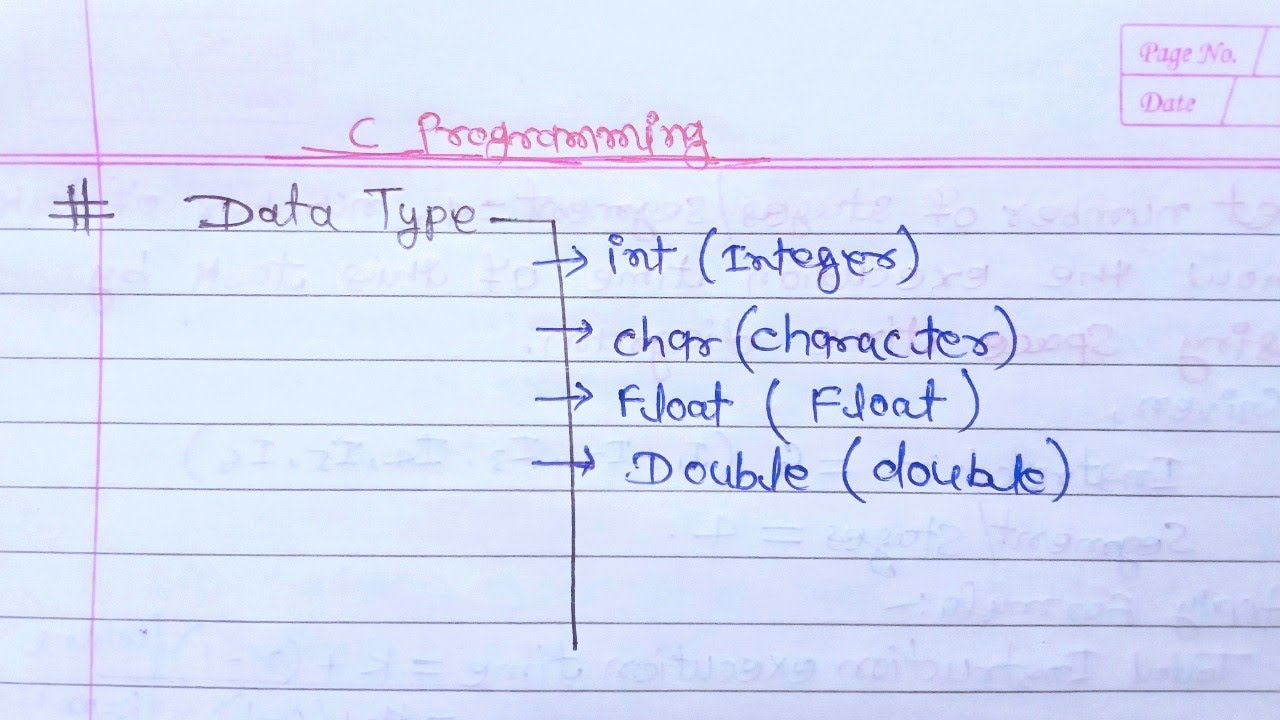 Page No.
Date
C Programming
# Data Type
int (Integer)
char (character)
Float ( Float )
Double (double)